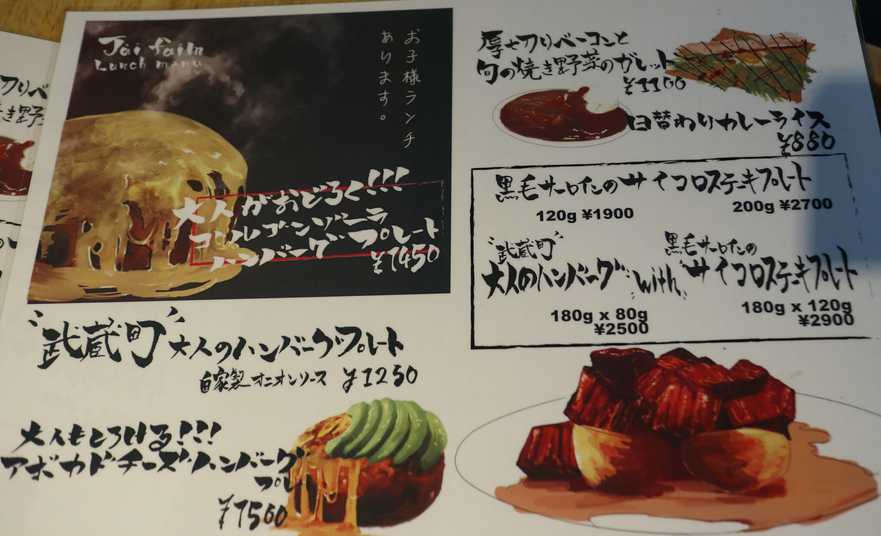 Jai faim
Lunch menu
お子様ランチ
あります。
大人がおどろく!!!
ゴルゴンゾーラ
ハンバーグプレート
¥1450
"武蔵町"大人のハンバーグプレート
自家製オニオンソース ¥1250
大人もとろける!!!
アボカドチーズハンバーグ
プレ
¥1500
厚切りベーコンと
旬の焼き野菜のガレット
¥1100
日替わりカレーライス
¥880
黒毛サーロインのサイコロステーキプレート
120g ¥1900
200g ¥2700
"武蔵町" 黒毛サーロインの
大人のハンバーグ with サイコロステーキプレート
180g x 80g
¥2500
180g x 120g
¥2900